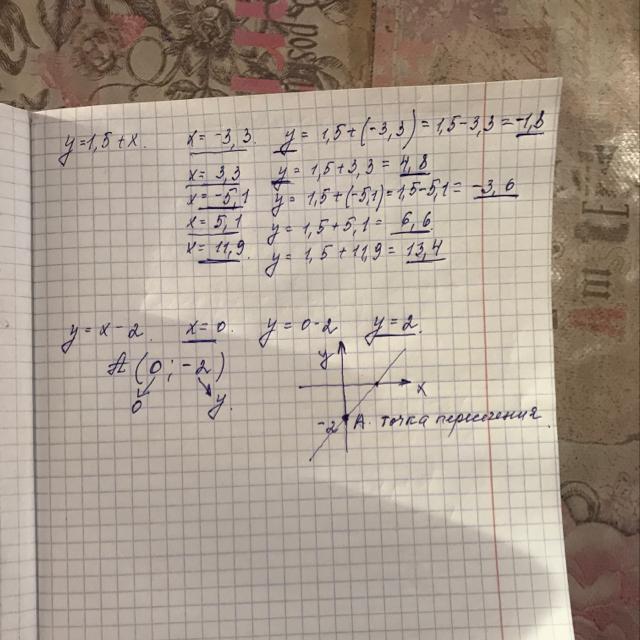 y=1,5+x. x=-3,3. y = 1,5+(-3,3) = 1,5-3,3 = -1,8
x= 3,3 y = 1,5+3,3 = 4,8
x= -5,1 y = 1,5+(-5,1)=1,5-5,1= -3,6
x= 5,1 y = 1,5+5,1= 6,6
x= 11,9 y = 1,5+11,9= 13,4
y= x-2. x=0. y= 0-2 y=2.
A (0; -2)
0 y.
y
x
-2 A. точка пересечения.